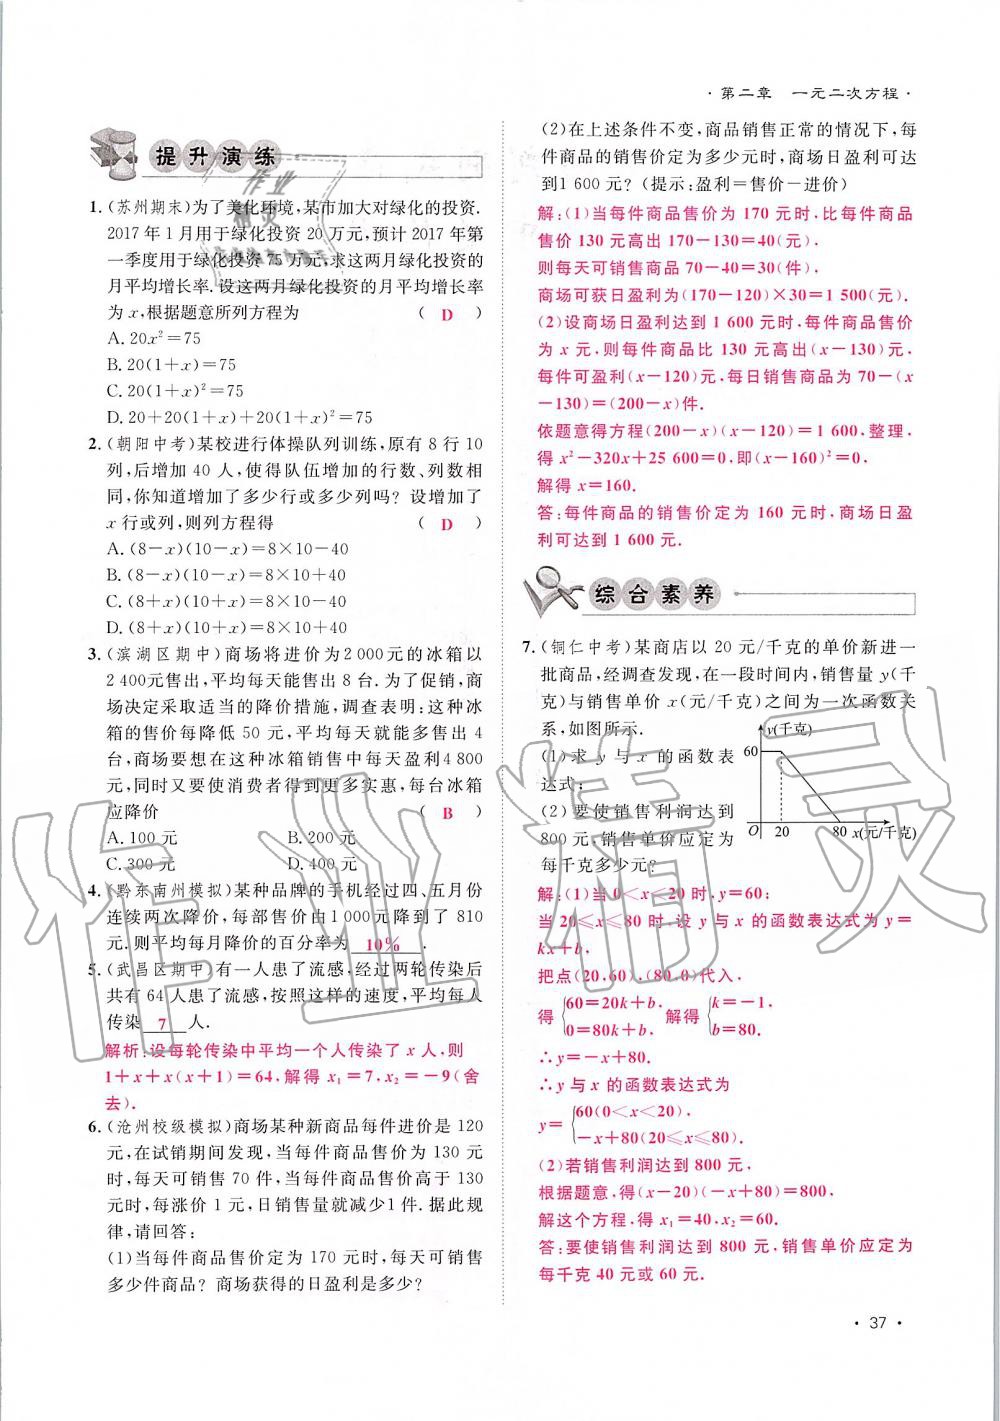 ·第二章 一元二次方程·
提升演练
1.(苏州期末)为了美化环境,某市加大对绿化的投资.
2017年1月用于绿化投资20万元,预计2017年第
一季度用于绿化投资75万元,求这两月绿化投资的
月平均增长率.设这两月绿化投资的月平均增长率
为x,根据题意所列方程为 ( D )
A.20x²=75
B.20(1+x)=75
C.20(1+x)²=75
D.20+20(1+x)+20(1+x)²=75
2.(朝阳中考)某校进行体操队列训练,原有8行10
列,后增加40人,使得队伍增加的行数、列数相
同,你知道增加了多少行或多少列吗?设增加了
x行或列,则列方程得 ( D )
A.(8-x)(10-x)=8×10-40
B.(8-x)(10-x)=8×10+40
C.(8+x)(10+x)=8×10-40
D.(8+x)(10+x)=8×10+40
3.(滨湖区期中)商场将进价为2 000元的冰箱以
2 400元售出,平均每天能售出8台.为了促销,商
场决定采取适当的降价措施,调查表明:这种冰
箱的售价每降低50元,平均每天就能多售出4
台,商场要想在这种冰箱销售中每天盈利4 800
元,同时又要使消费者得到更多实惠,每台冰箱
应降价 ( B )
A.100元 B.200元
C.300元 D.400元
4.(黔东南州模拟)某种品牌的手机经过四、五月份
连续两次降价,每部售价由1 000元降到了810
元.则平均每月降价的百分率为 10% .
5.(武昌区期中)有一人患了流感,经过两轮传染后
共有64人患了流感,按照这样的速度,平均每人
传染 7 人.
解析:设每轮传染中平均一个人传染了x人,则
1+x+x(x+1)=64,解得x₁=7,x₂=-9(舍
去).
6.(沧州校级模拟)商场某种新商品每件进价是120
元,在试销期间发现,当每件商品售价为130元
时,每天可销售70件,当每件商品售价高于130
元时,每涨价1元,日销售量就减少1件.据此规
律,请回答:
(1)当每件商品售价定为170元时,每天可销售
多少件商品?商场获得的日盈利是多少?
(2)在上述条件不变,商品销售正常的情况下,每
件商品的销售价定为多少元时,商场日盈利可达
到1 600元?(提示:盈利=售价-进价)
解:(1)当每件商品售价为170元时,比每件商品
售价130元高出170-130=40(元).
则每天可销售商品70-40=30(件).
商场可获日盈利为(170-120)×30=1 500(元).
(2)设商场日盈利达到1 600元时,每件商品售价
为x元,则每件商品比130元高出(x-130)元.
每件可盈利(x-120)元,每日销售商品为70-(x
-130)=(200-x)件.
依题意得方程(200-x)(x-120)=1 600,整理.
得x²-320x+25 600=0,即(x-160)²=0.
解得x=160.
答:每件商品的销售价定为160元时,商场日盈
利可达到1 600元.
综合素养
7.(铜仁中考)某商店以20元/千克的单价新进一
批商品,经调查发现,在一段时间内,销售量y(千
克)与销售单价x(元/千克)之间为一次函数关
系,如图所示.
(1)求y与x的函数表
达式;
(2)要使销售利润达到
800元,销售单价应定为
每千克多少元?
y(千克)
60
O 20 80 x(元/千克)
解:(1)当0<x<20时,y=60;
当20≤x≤80时,设y与x的函数表达式为y=
kx+b.
把点(20,60),(80,0)代入.
得{60=20k+b, 0=80k+b. 解得{k=-1, b=80.
∴y=-x+80.
∴y与x的函数表达式为
y={60(0<x<20), -x+80(20≤x≤80).
(2)若销售利润达到800元.
根据题意,得(x-20)(-x+80)=800.
解这个方程,得x₁=40,x₂=60.
答:要使销售利润达到800元,销售单价应定为
每千克40元或60元.
·37·
作业精灵